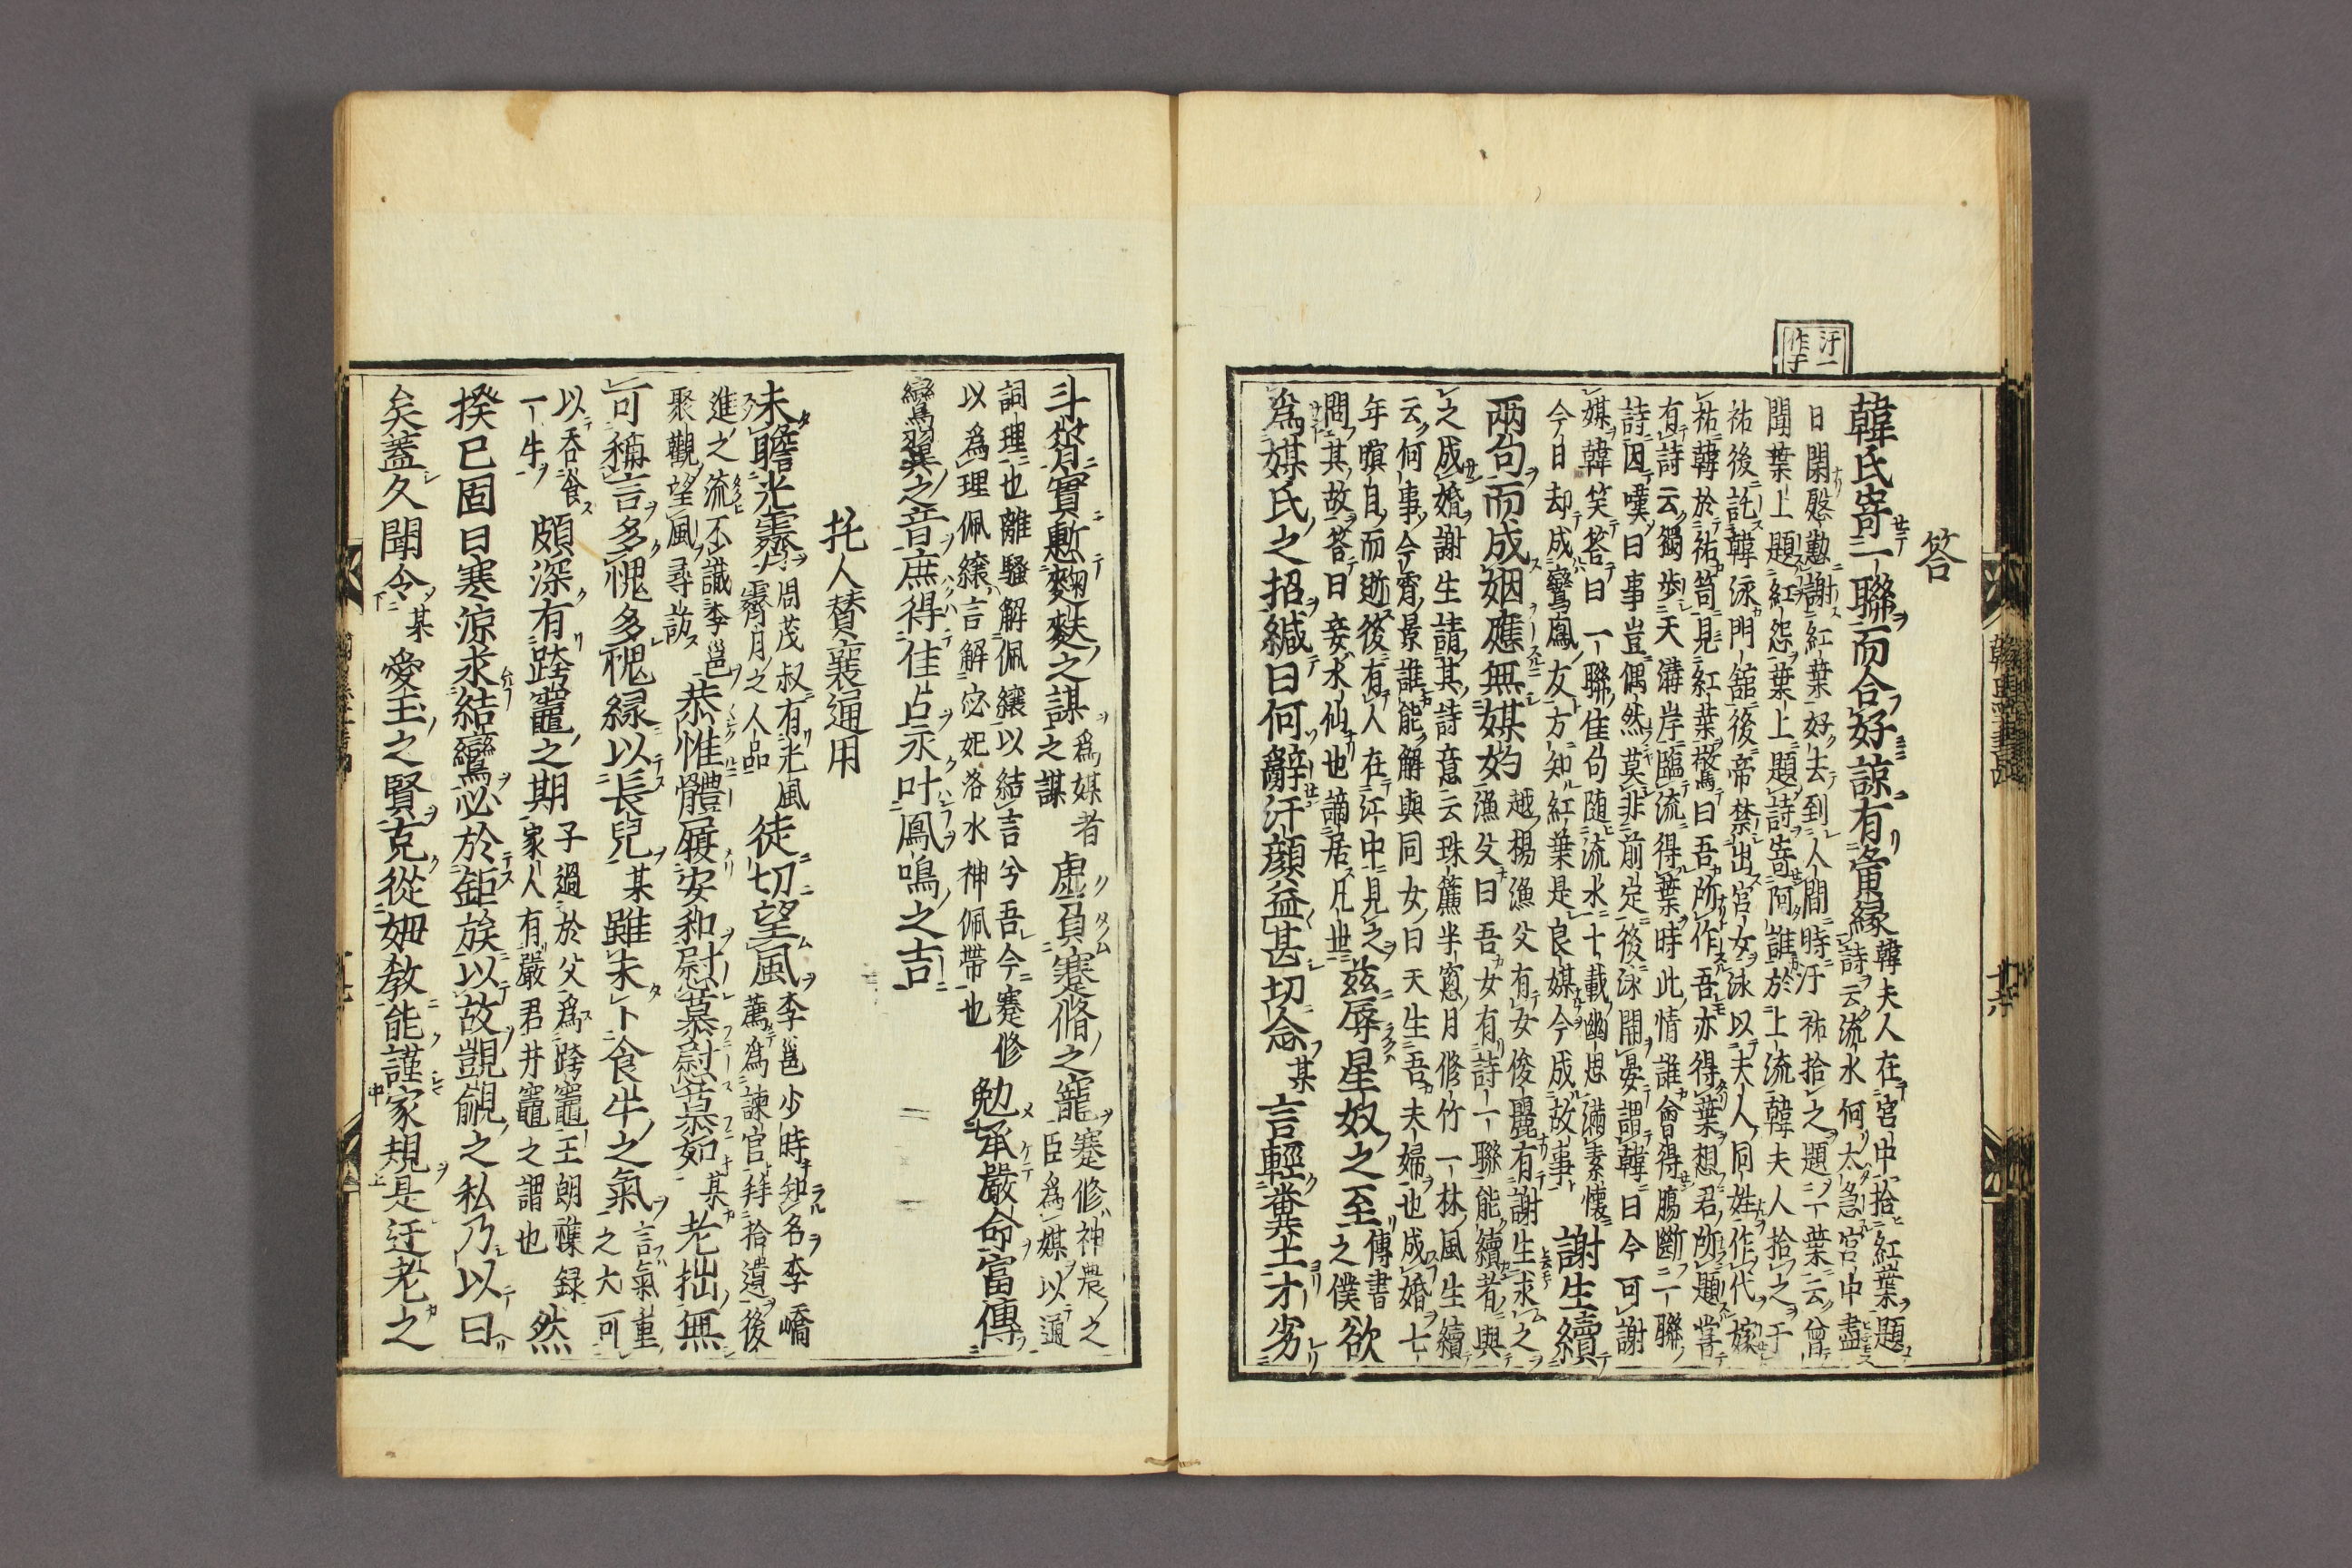 答
韓氏寄一聯而合好諒有夤縁
韓夫人在宮中拾紅葉題
詩云流水何太急宮中盡
日閑慇懃謝紅葉好去到人間時汙祐拾之題一葉云曾
聞葉上題紅怨葉上題詩寄阿誰於上流韓夫人拾之于
祐後託韓泳門舘後帝禁出宮女泳以夫人同姓作代嫁
祐韓於祐笥見紅葉驚曰吾所作吾亦得葉想君所題甞
有詩云獨歩天溝岸臨流得葉時此情誰會得膓斷一聯
詩因嘆曰事豈偶然莫非前定後泳開宴謂韓曰今可謝
媒韓笑答曰一聯佳句随流水十載幽思滿素懷
今日却成鸞鳳友方知紅葉是良媒今成故事
謝生續
兩句而成姻應無媒妁
越楊漁父有女俊麗有謝生求之
漁父曰吾女有詩一聯能續者與
之成婚謝生請其詩意云珠簾半窓月修竹一林風生續
云何事今宵景誰能解與同女曰天生吾夫婦也成婚七
年暝自而逝後有人在江中見之
問其故答曰妾水仙也謫居凡世
茲辱星奴之至
傳書
之僕
欲
爲媒氏之招緘曰何辭汗顔益甚切念
某
言輕糞土才劣
汙一
作于
十六
斗筲實慙麴麩之謀
爲媒者
之謀
虚負蹇脩之寵
蹇修神農之
臣爲媒以通
詞理也離騷解佩纕以結言兮吾今蹇修
以爲理佩纕言解宓妃洛水神佩帶也
勉承嚴命當傳
鸞翼之音庶得佳占永叶鳳鳴之吉
托人賛襄通用
未瞻光霽
周茂叔有光風
霽月之人品
徒切望風
李邕少時知名李嶠
薦爲諫官拜拾遺後
進之流不識李邕
聚觀望風尋訪
恭惟體履安和尉慕尉慕茹
某
老拙無
可稱言多愧多愧縁以長兒
某
雖未卜食牛之氣
言氣重
之大可
以呑食
一牛
頗深有跨竈之期
子過於父爲跨竈王朗襍録
家人有嚴君井竈之謂也
然
揆已固曰寒凉求結鸞必於鉅族以故覬覦之私乃以曰
矣蓋久聞令
某
愛玉之賢克從姆教能謹家規是迂老之